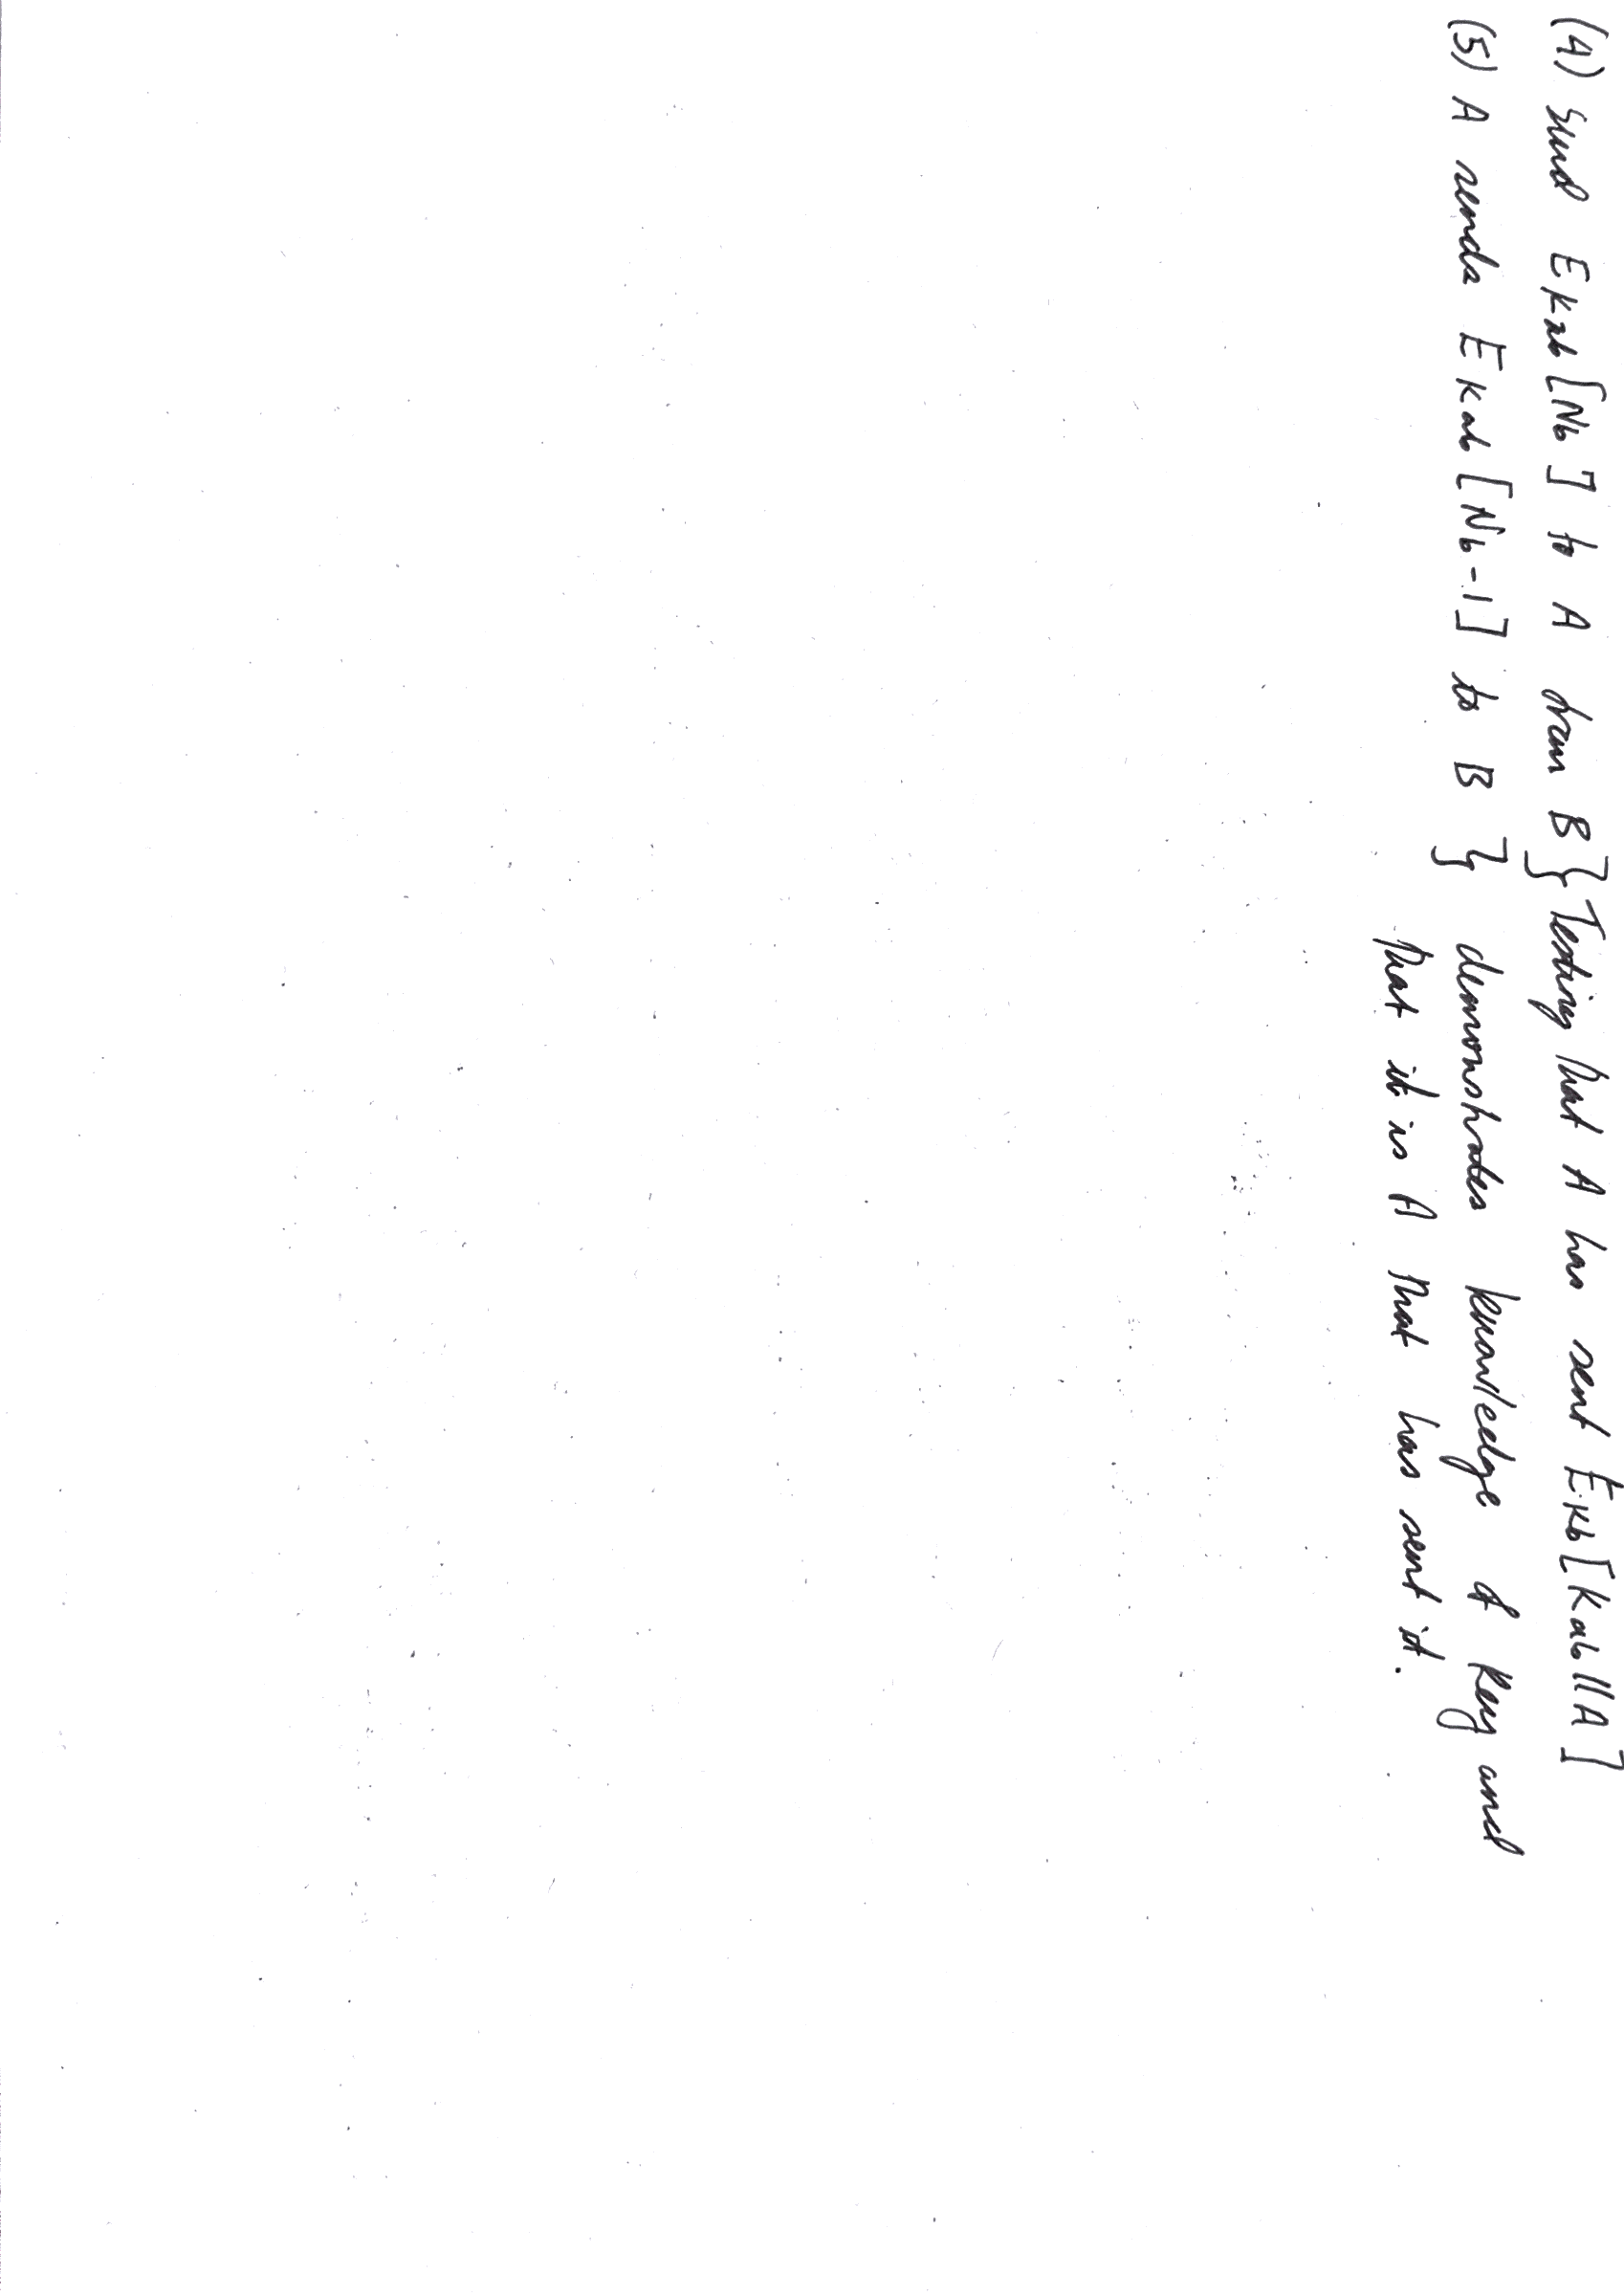 (4) Send EKab[Nb] to A from B} Testing that A has sent EKb[Kab||A]
(5) A sends EKab[Nb-1] to B } demonstrates knowledge of key and
that it is A that has sent it.